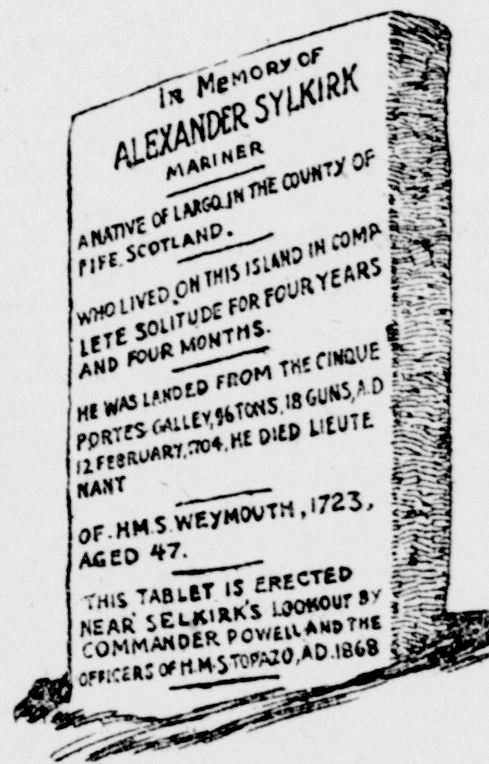 IN MEMORY OF
ALEXANDER SYLKIRK
MARINER
A NATIVE OF LARGO, IN THE COUNTY OF
FIFE, SCOTLAND.
WHO LIVED ON THIS ISLAND IN COMP
LETE SOLITUDE FOR FOUR YEARS
AND FOUR MONTHS.
HE WAS LANDED FROM THE CINQUE
PORTES GALLEY, 96 TONS, 18 GUNS, A.D
12 FEBRUARY, 1704, HE DIED LIEUTE
NANT
OF H.M.S. WEYMOUTH, 1723,
AGED 47.
THIS TABLET IS ERECTED
NEAR SELKIRK'S LOOKOUT BY
COMMANDER POWELL AND THE
OFFICERS OF H.M.S TOPAZO, AD. 1868